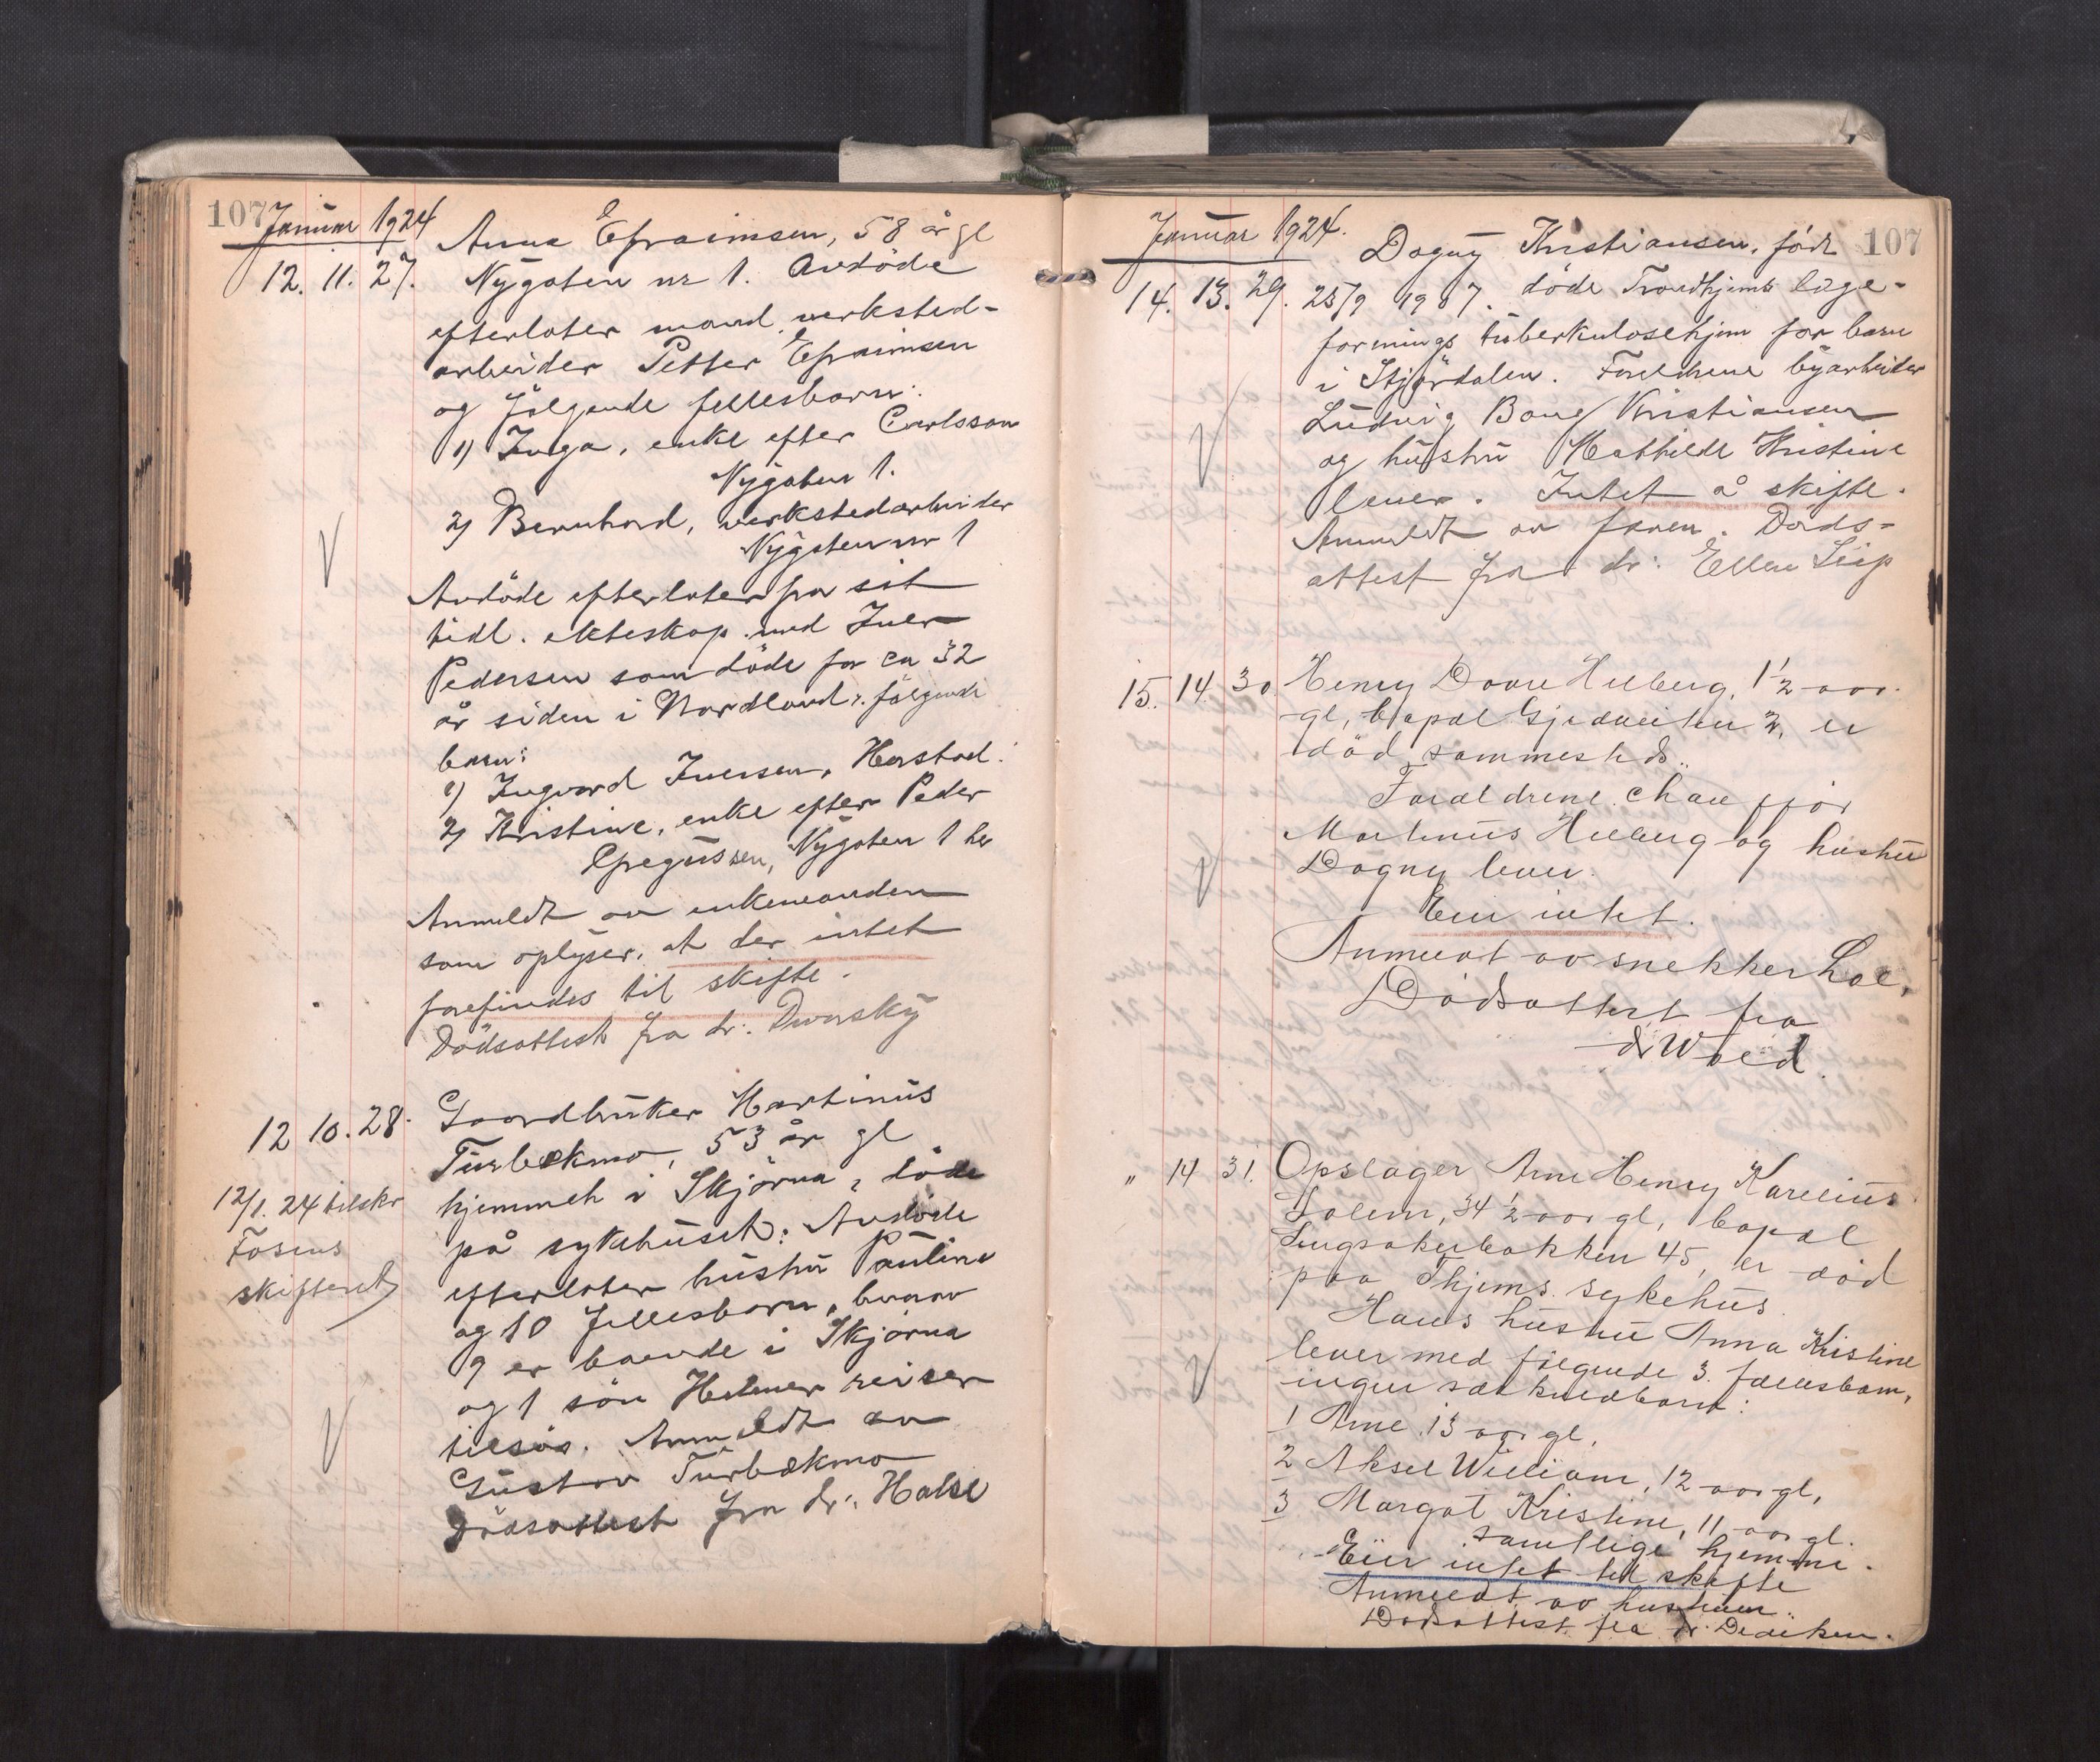 107 Januar 1924
Anna Efraimsen, 58 år gl
12. 11. 27. Nygaten nr 1. Avdöde
efterlater mand verksted-
arbeider Petter Efraimsen
og følgende fellesbarn:
1) Inga, enke efter Carlsson
Nygaten 1.
2) Bernhard, verkstedarbeider
Nygaten nr 1
Avdöde efterlater fra sit
tidl. ekteskap med Iver
Pedersen som döde for ca 32
år siden i Nordland, følgende
barn:
1) Ingvard Iversen, Harstad.
2) Kristine, enke efter Peder
Gregussen, Nygaten 1 her
Anmeldt av enkemanden
som oplyser, at der intet
forefindes til skifte.
Dödsattest fra dr. Dworsky
12 10. 28. Gaardbruker Martinus
Turbekmo, 53 år gl
hjemmeh i Skjörna, döde
12/1. 24 tilskr på sykehuset. Avdöde
Fosens efterlater hustru Pauline
skifteret og 10 fellesbarn, hvorav
9 er boende i Skjörna
og 1 sön Helmer reiser
tilsös. Anmeldt av
Gustav Turbekmo
Dödsattest fra dr. Halse
Januar 1924. 107
Dagny Kristiansen, födt
14. 13. 29. 25/9 1907. döde Trondhjems læge-
forenings tuberkulosehjem for barn
i Stjördalen. Foreldrene byarbeider
Ludvig Bang Kristiansen
og hustru Mathilde Kristine
lever. Intet å skifte.
Anmeldt av faren. Döds-
attest fra dr. Ellen
15. 14. 30. Henry Doore Helberg, 1 1/2 aar.
gl, bopæl Gjedveiten 2, er
död sammesteds.
Forældrene chauffør
Martinus Helberg og hustru
Dagny lever.
Eier intet.
Anmeldt av snekker Loe,
Dödsattest fra
dr Wold
" 14 31. Opslager Arne Henry Karelius
Solem, 34 1/2 aar gl, bopæl
Singsakerbakken 45, er död
paa Thjems sykehus.
Hans hustru Anna Kristine
lever med følgende 3 fællesbarn,
ingen særkuldbarn:
1 Arne 13 aar gl,
2 Aksel William, 12 aar gl,
3 Margot Kristine, 11 aar gl.
samtlige hjemme.
Eier intet til skifte
Anmeldt av hustruen.
Dödsattest fra dr. Dedichen.